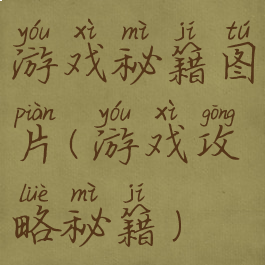 yóu xì mì jí tú
游戏秘籍图
piàn yóu xì gōng
片(游戏攻
lüè mì jí
略秘籍)